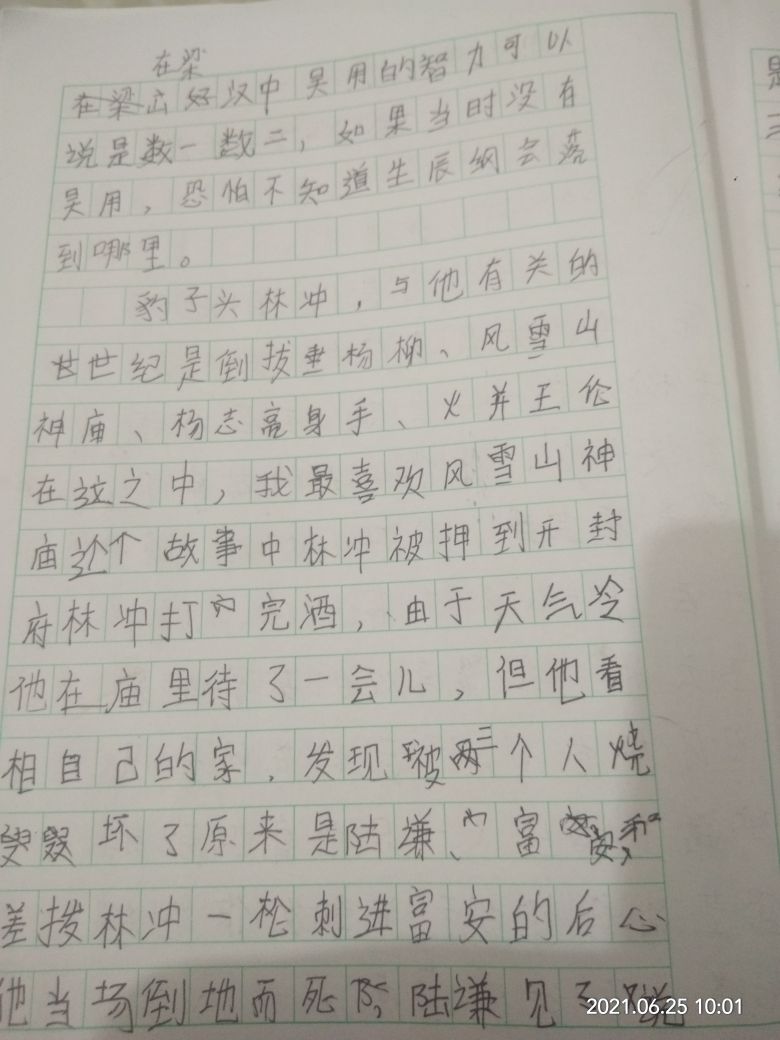 在梁
在梁山好汉中吴用的智力可以
说是数一数二，如果当时没有
吴用，恐怕不知道生辰纲会落
到哪里。
豹子头林冲，与他有关的
世纪是倒拔垂杨柳、风雪山
神庙、杨志亮身手、火并王伦
在这之中，我最喜欢风雪山神
庙这个故事中林冲被押到开封
府林冲打完酒，由于天气冷
他在庙里待了一会儿，但他看
相自己的家，发现被三个人烧
毁坏了原来是陆谦、富安和
差拨林冲一枪刺进富安的后心
他当场倒地而死陆谦见了说
2021.06.25 10:01
是
三